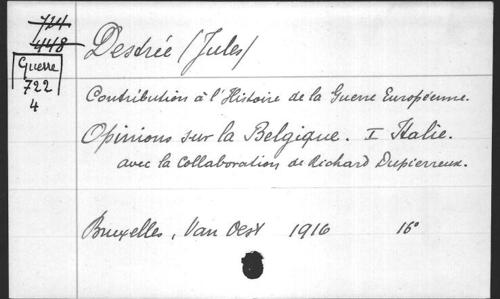 714
448
Guerre
722
4
Destrée (Jules)
Contribution à l'Histoire de la Guerre Européenne.
Opinions sur la Belgique. I Italie.
avec la collaboration de Richard Dupierreux.
Bruxelles, Van Oest 1916 16°